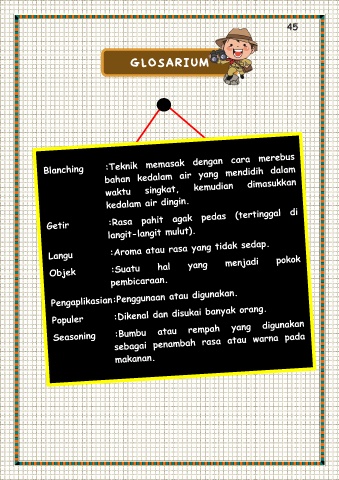 45
GLOSARIUM
Blanching :Teknik memasak dengan cara merebus
bahan kedalam air yang mendidih dalam
waktu singkat, kemudian dimasukkan
kedalam air dingin.
Getir :Rasa pahit agak pedas (tertinggal di
langit-langit mulut).
Langu :Aroma atau rasa yang tidak sedap.
Objek :Suatu hal yang menjadi pokok
pembicaraan.
Pengaplikasian:Penggunaan atau digunakan.
Populer :Dikenal dan disukai banyak orang.
Seasoning :Bumbu atau rempah yang digunakan
sebagai penambah rasa atau warna pada
makanan.